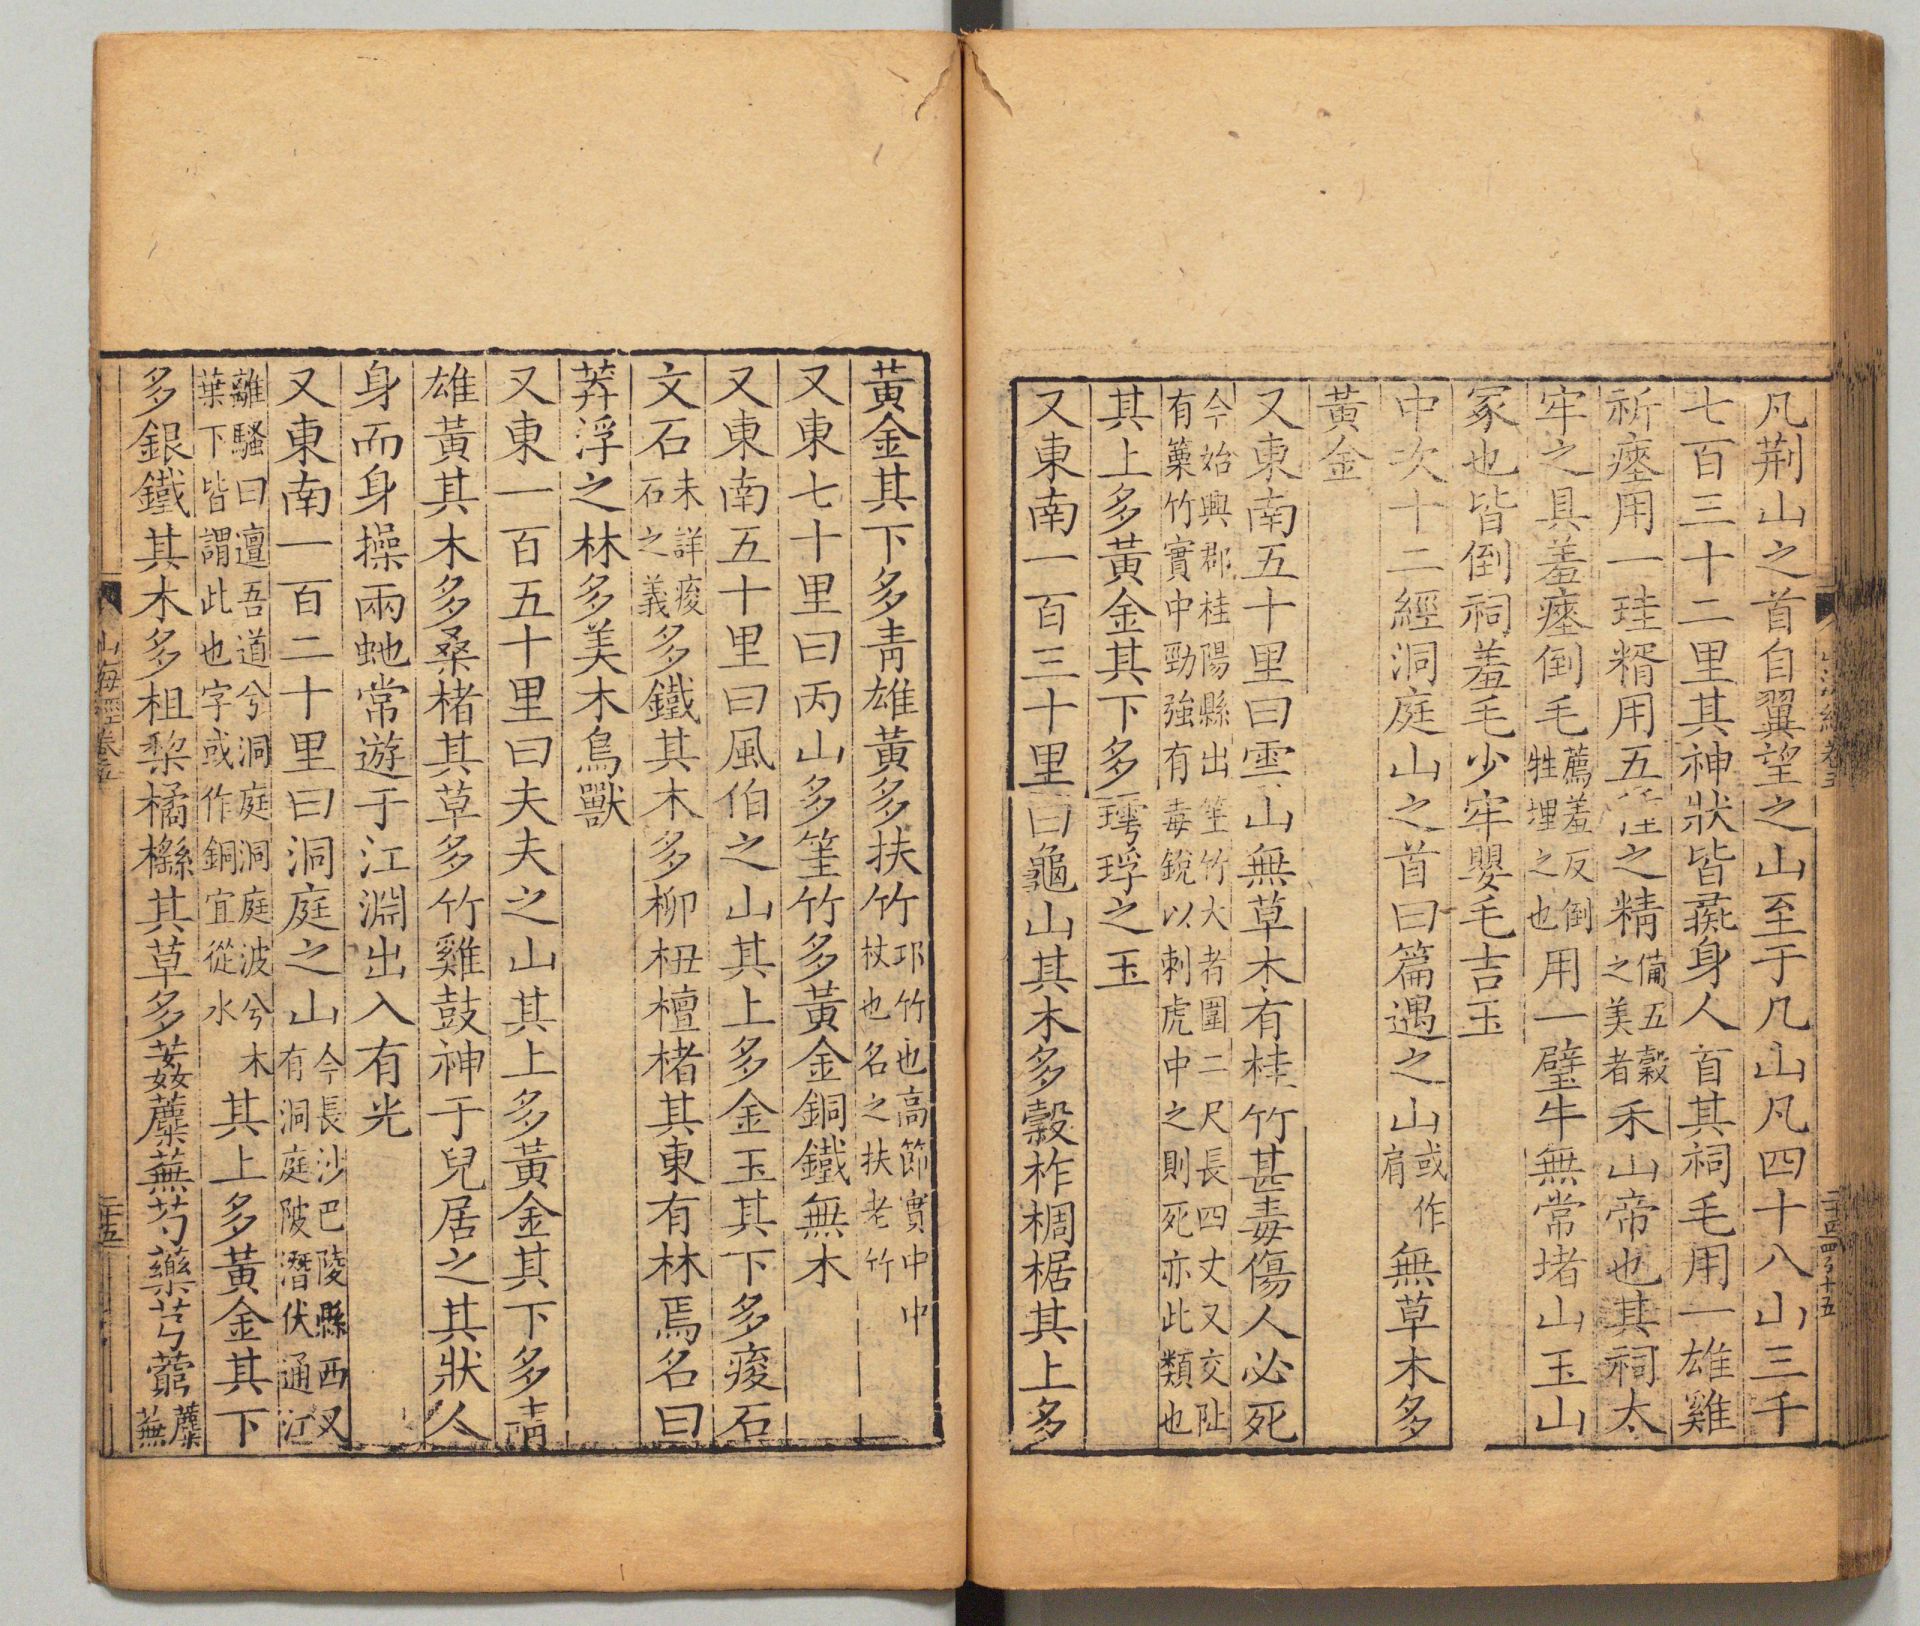 凡荆山之首自翼望之山至于几山凡四十八山三千
七百三十二里其神狀皆彘身人首其祠毛用一雄雞
祈瘞用一珪糈用五種之精備五穀之美者禾山帝也其祠太
牢之具羞瘞倒毛薦羞反倒牲埋之也用一璧牛無常堵山玉山
冢也皆倒祠羞毛少牢嬰毛吉玉
中次十二經洞庭山之首曰篇遇之山或作肩無草木多
黃金
又東南五十里曰雲山無草木有桂竹甚毒傷人必死
今始興郡桂陽縣出筀竹大者圍二尺長四丈又交阯
有篥竹實中勁強有毒銳以刺虎中之則死亦此類也
其上多黃金其下多㻬琈之玉
又東南一百三十里曰龜山其木多穀柞椆椐其上多
黃金其下多青雄黃多扶竹邛竹也高節實中中杖也名之扶老竹
又東七十里曰丙山多筀竹多黃金銅鐵無木
又東南五十里曰風伯之山其上多金玉其下多痠石
文石未詳痠石之義多鐵其木多柳杻檀楮其東有林焉名曰
莽浮之林多美木鳥獸
又東一百五十里曰夫夫之山其上多黃金其下多青
雄黃其木多桑楮其草多竹雞鼓神于兒居之其狀人
身而身操兩虵常遊于江淵出入有光
又東南一百二十里曰洞庭之山今長沙巴陵縣西又有洞庭陂潛伏通江
離騷曰邅吾道兮洞庭洞庭波兮木葉下皆謂此也字或作銅宜從水其上多黃金其下
多銀鐵其木多柤梨橘櫾其草多葌蘪蕪芍藥芎藭蘪蕪
山海經卷五
二十五